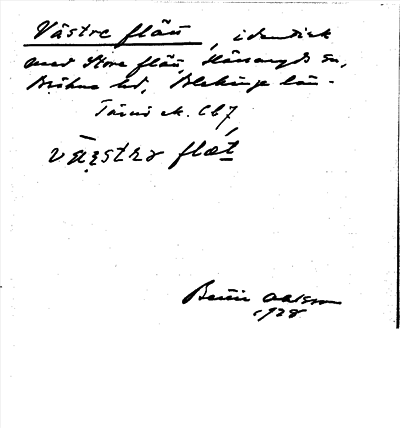 Västre flän, identisk
med Store flän, Hänaryds sn,
Bräkne hd, Blekinge län.
Tärnö ek. Cb7
væstrə flæt
Bertil Ohlsson
1928